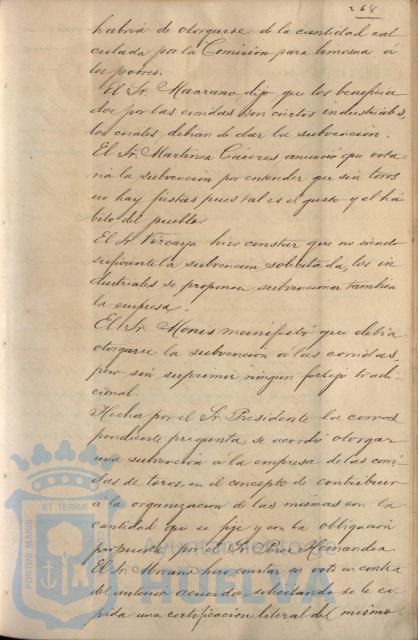 268
habrá de otorgarse de la cantidad cal
culada por la Comision para limosna á
los pobres.
El Sr. Manzano dijo que los beneficia
dos por las corridas son ciertos industriales,
los cuales debian de dar la subvencion.
El Sr. Martinez Cáceres anunció que vota
ria la subvencion por entender que sin toros
no hay fiestas pues tal es el gusto y el há
bito del pueblo.
El Sr. Vizcaya hizo constar que no siendo
suficiente la subvencion solicitada, los in
dustriales se proponen subvencionar tambien
la empresa.
El Sr. Monis manifestó que debia
otorgarse la subvencion á las corridas,
pero sin suprimir ningun festejo tradi
cional.
Hecha por el Sr. Presidente la corres
pondiente pregunta se acordó otorgar
una subvencion á la empresa de las corri
das de toros en el concepto de contribuir
á la organizacion de las mismas con la
cantidad que se fije y con la obligacion
propuesta por el Sr. Perez Hernandez
El Sr. Morano hizo constar su voto en contra
del anterior acuerdo solicitando se le ex
pida una certificacion literal del mismo.
PORTUS MARIS ET TERRAE
Ayuntamiento de
HUELVA